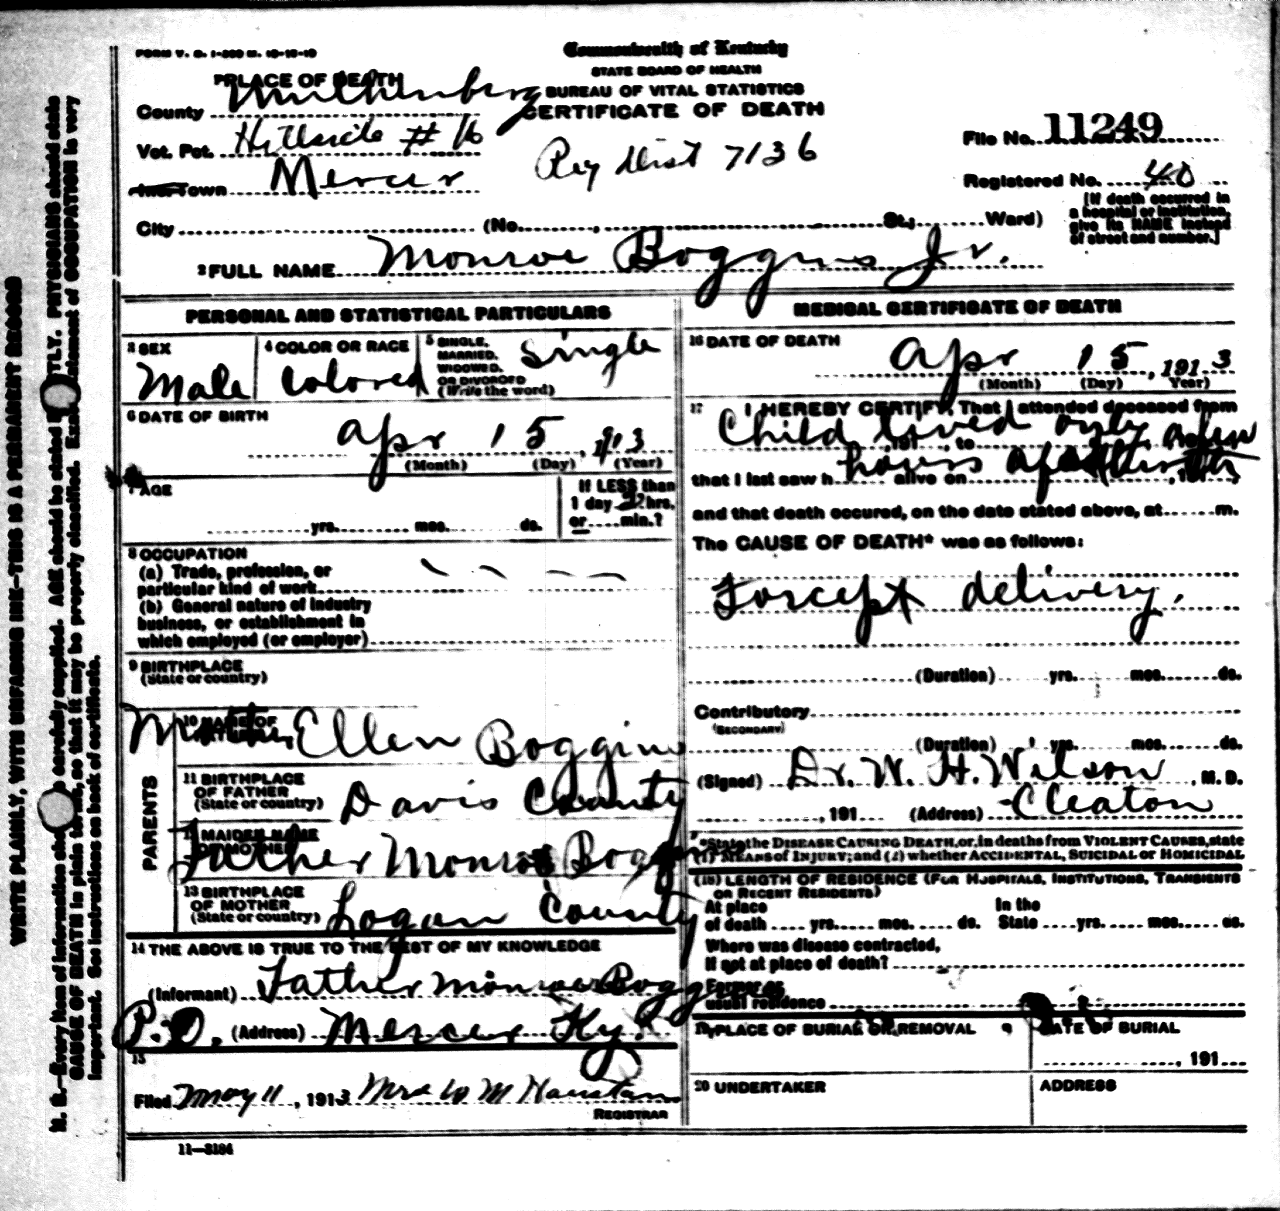 FORM V. S. 1-200 M. 10-16-10
Commonwealth of Kentucky
STATE BOARD OF HEALTH
BUREAU OF VITAL STATISTICS
CERTIFICATE OF DEATH
PLACE OF DEATH
County Muhlenberg
Vot. Pct. Hillside # 16
Inc. Town Mercer
Reg Dist 7136
File No. 11249
Registered No. 40
[If death occurred in a hospital or institution, give its NAME instead of street and number.]
City (No. , St.; Ward)
2 FULL NAME Monroe Boggins Jr.
PERSONAL AND STATISTICAL PARTICULARS
3 SEX Male
4 COLOR OR RACE Colored
5 SINGLE, MARRIED, WIDOWED, OR DIVORCED (Write the word) Single
6 DATE OF BIRTH
Apr 15, 1913
(Month) (Day) (Year)
7 AGE
yrs. mos. ds.
If LESS than
1 day 2 hrs.
or min.?
8 OCCUPATION
(a) Trade, profession, or
particular kind of work
(b) General nature of industry
business, or establishment in
which employed (or employer)
9 BIRTHPLACE
(State or country)
PARENTS
10 NAME OF
Mother Ellen Boggins
11 BIRTHPLACE
OF FATHER
(State or country) Davis County
12 MAIDEN NAME
OF MOTHER
Father Monroe Boggins
13 BIRTHPLACE
OF MOTHER
(State or country) Logan County
14 THE ABOVE IS TRUE TO THE BEST OF MY KNOWLEDGE
(Informant) Father Monroe Boggins
P.O. (Address) Mercer Ky.
15
Filed May 11, 1913 Mrs W M
REGISTRAR
11—3184
MEDICAL CERTIFICATE OF DEATH
16 DATE OF DEATH
Apr 15, 1913
(Month) (Day) (Year)
17 I HEREBY CERTIFY, That I attended deceased from
Child lived only a few
, 191 , to
hours after birth
that I last saw h alive on , 191 ,
and that death occured, on the date stated above, at m.
The CAUSE OF DEATH* was as follows:
Forcept delivery.
(Duration) yrs. mos. ds.
Contributory
(SECONDARY)
(Duration) yrs. mos. ds.
(Signed) Dr. W. H. Wilson, M. D.
, 191 (Address) Cleaton
*State the DISEASE CAUSING DEATH, or, in deaths from VIOLENT CAUSES, state
(1) MEANS of INJURY; and (2) whether ACCIDENTAL, SUICIDAL or HOMICIDAL
(18) LENGTH OF RESIDENCE (FOR HOSPITALS, INSTITUTIONS, TRANSIENTS
OR RECENT RESIDENTS)
At place In the
of death yrs. mos. ds. State yrs. mos. ds.
Where was disease contracted,
If not at place of death?
Former or
usual residence
19 PLACE OF BURIAL OR REMOVAL
DATE OF BURIAL
, 191
20 UNDERTAKER
ADDRESS
WRITE PLAINLY, WITH UNFADING INK—THIS IS A PERMANENT RECORD
N. B.—Every item of information should be carefully supplied. AGE should be stated EXACTLY. PHYSICIANS should state
CAUSE OF DEATH in plain terms, so that it may be properly classified. Exact statement of OCCUPATION is very
important. See instructions on back of certificate.